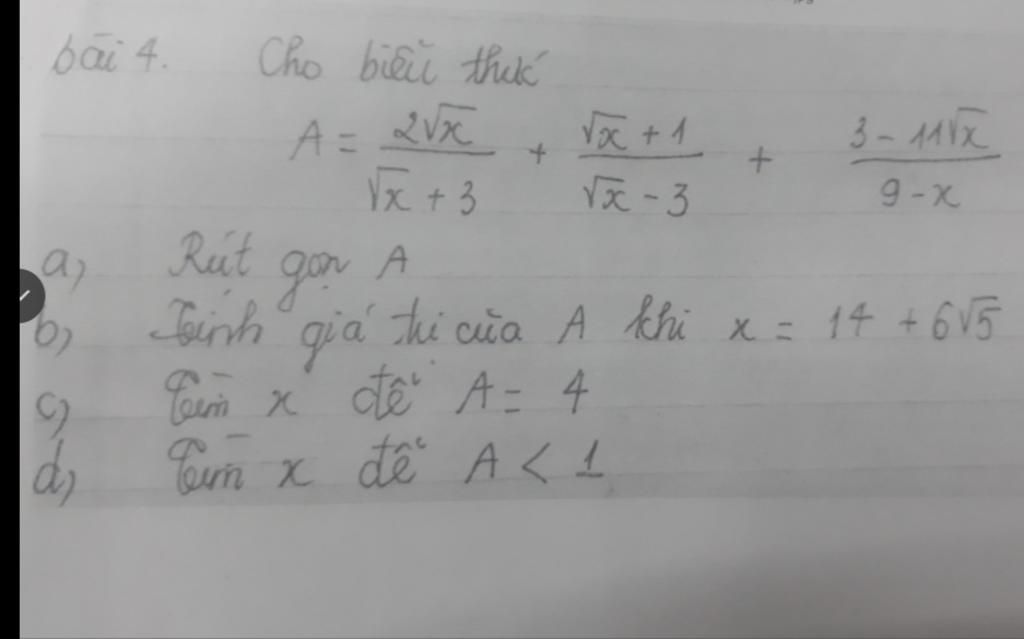 bài 4. Cho biểu thức
A = 2√x / (√x + 3) + (√x + 1) / (√x - 3) + (3 - 11√x) / (9 - x)
a) Rút gọn A
b) Tính giá trị của A khi x = 14 + 6√5
c) Tìm x để A = 4
d) Tìm x để A < 1